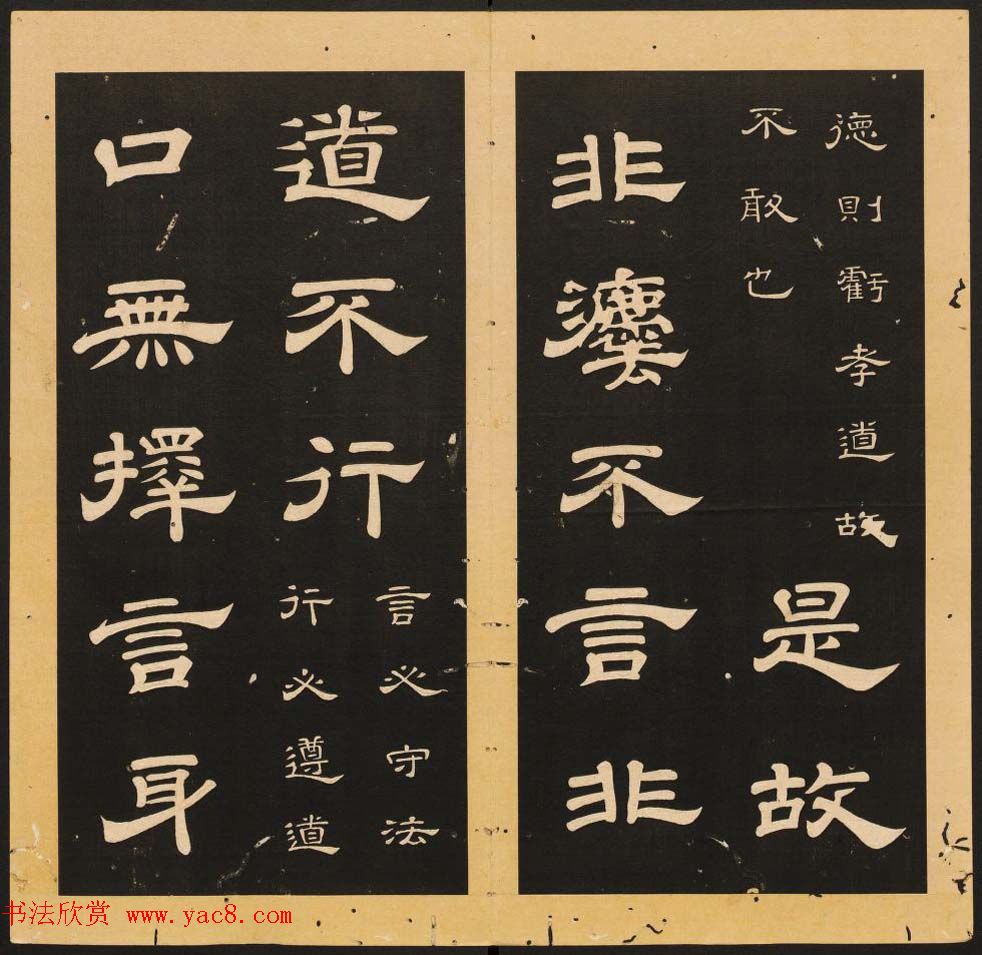 德則虧孝道故
不敢也
是故
非灋不言非
道不行
言必守法
行必遵道
口無擇言身
书法欣赏 www.yac8.com